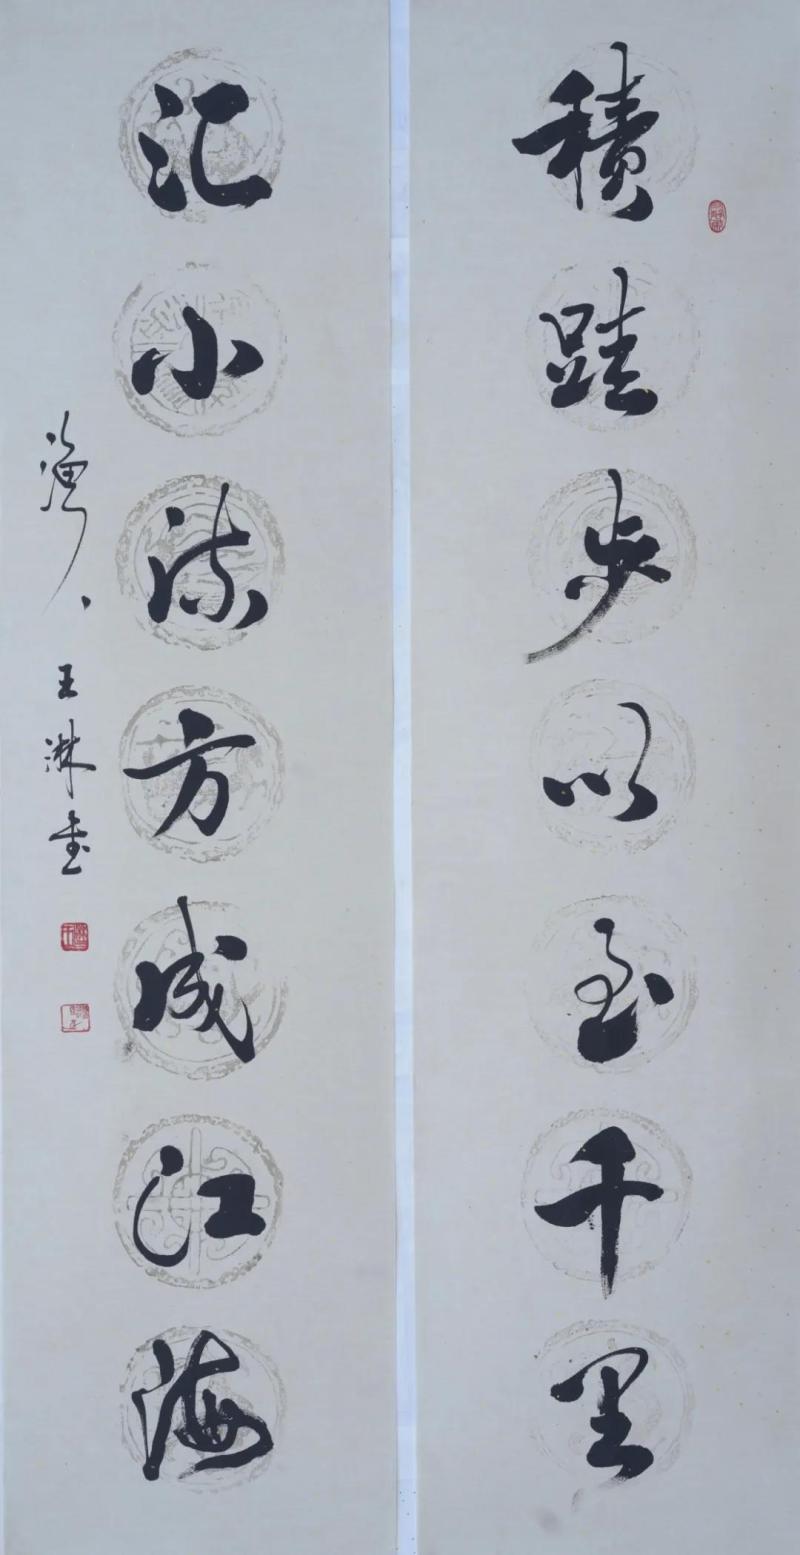 積跬步以至千里
汇小流方成江海
王淋書